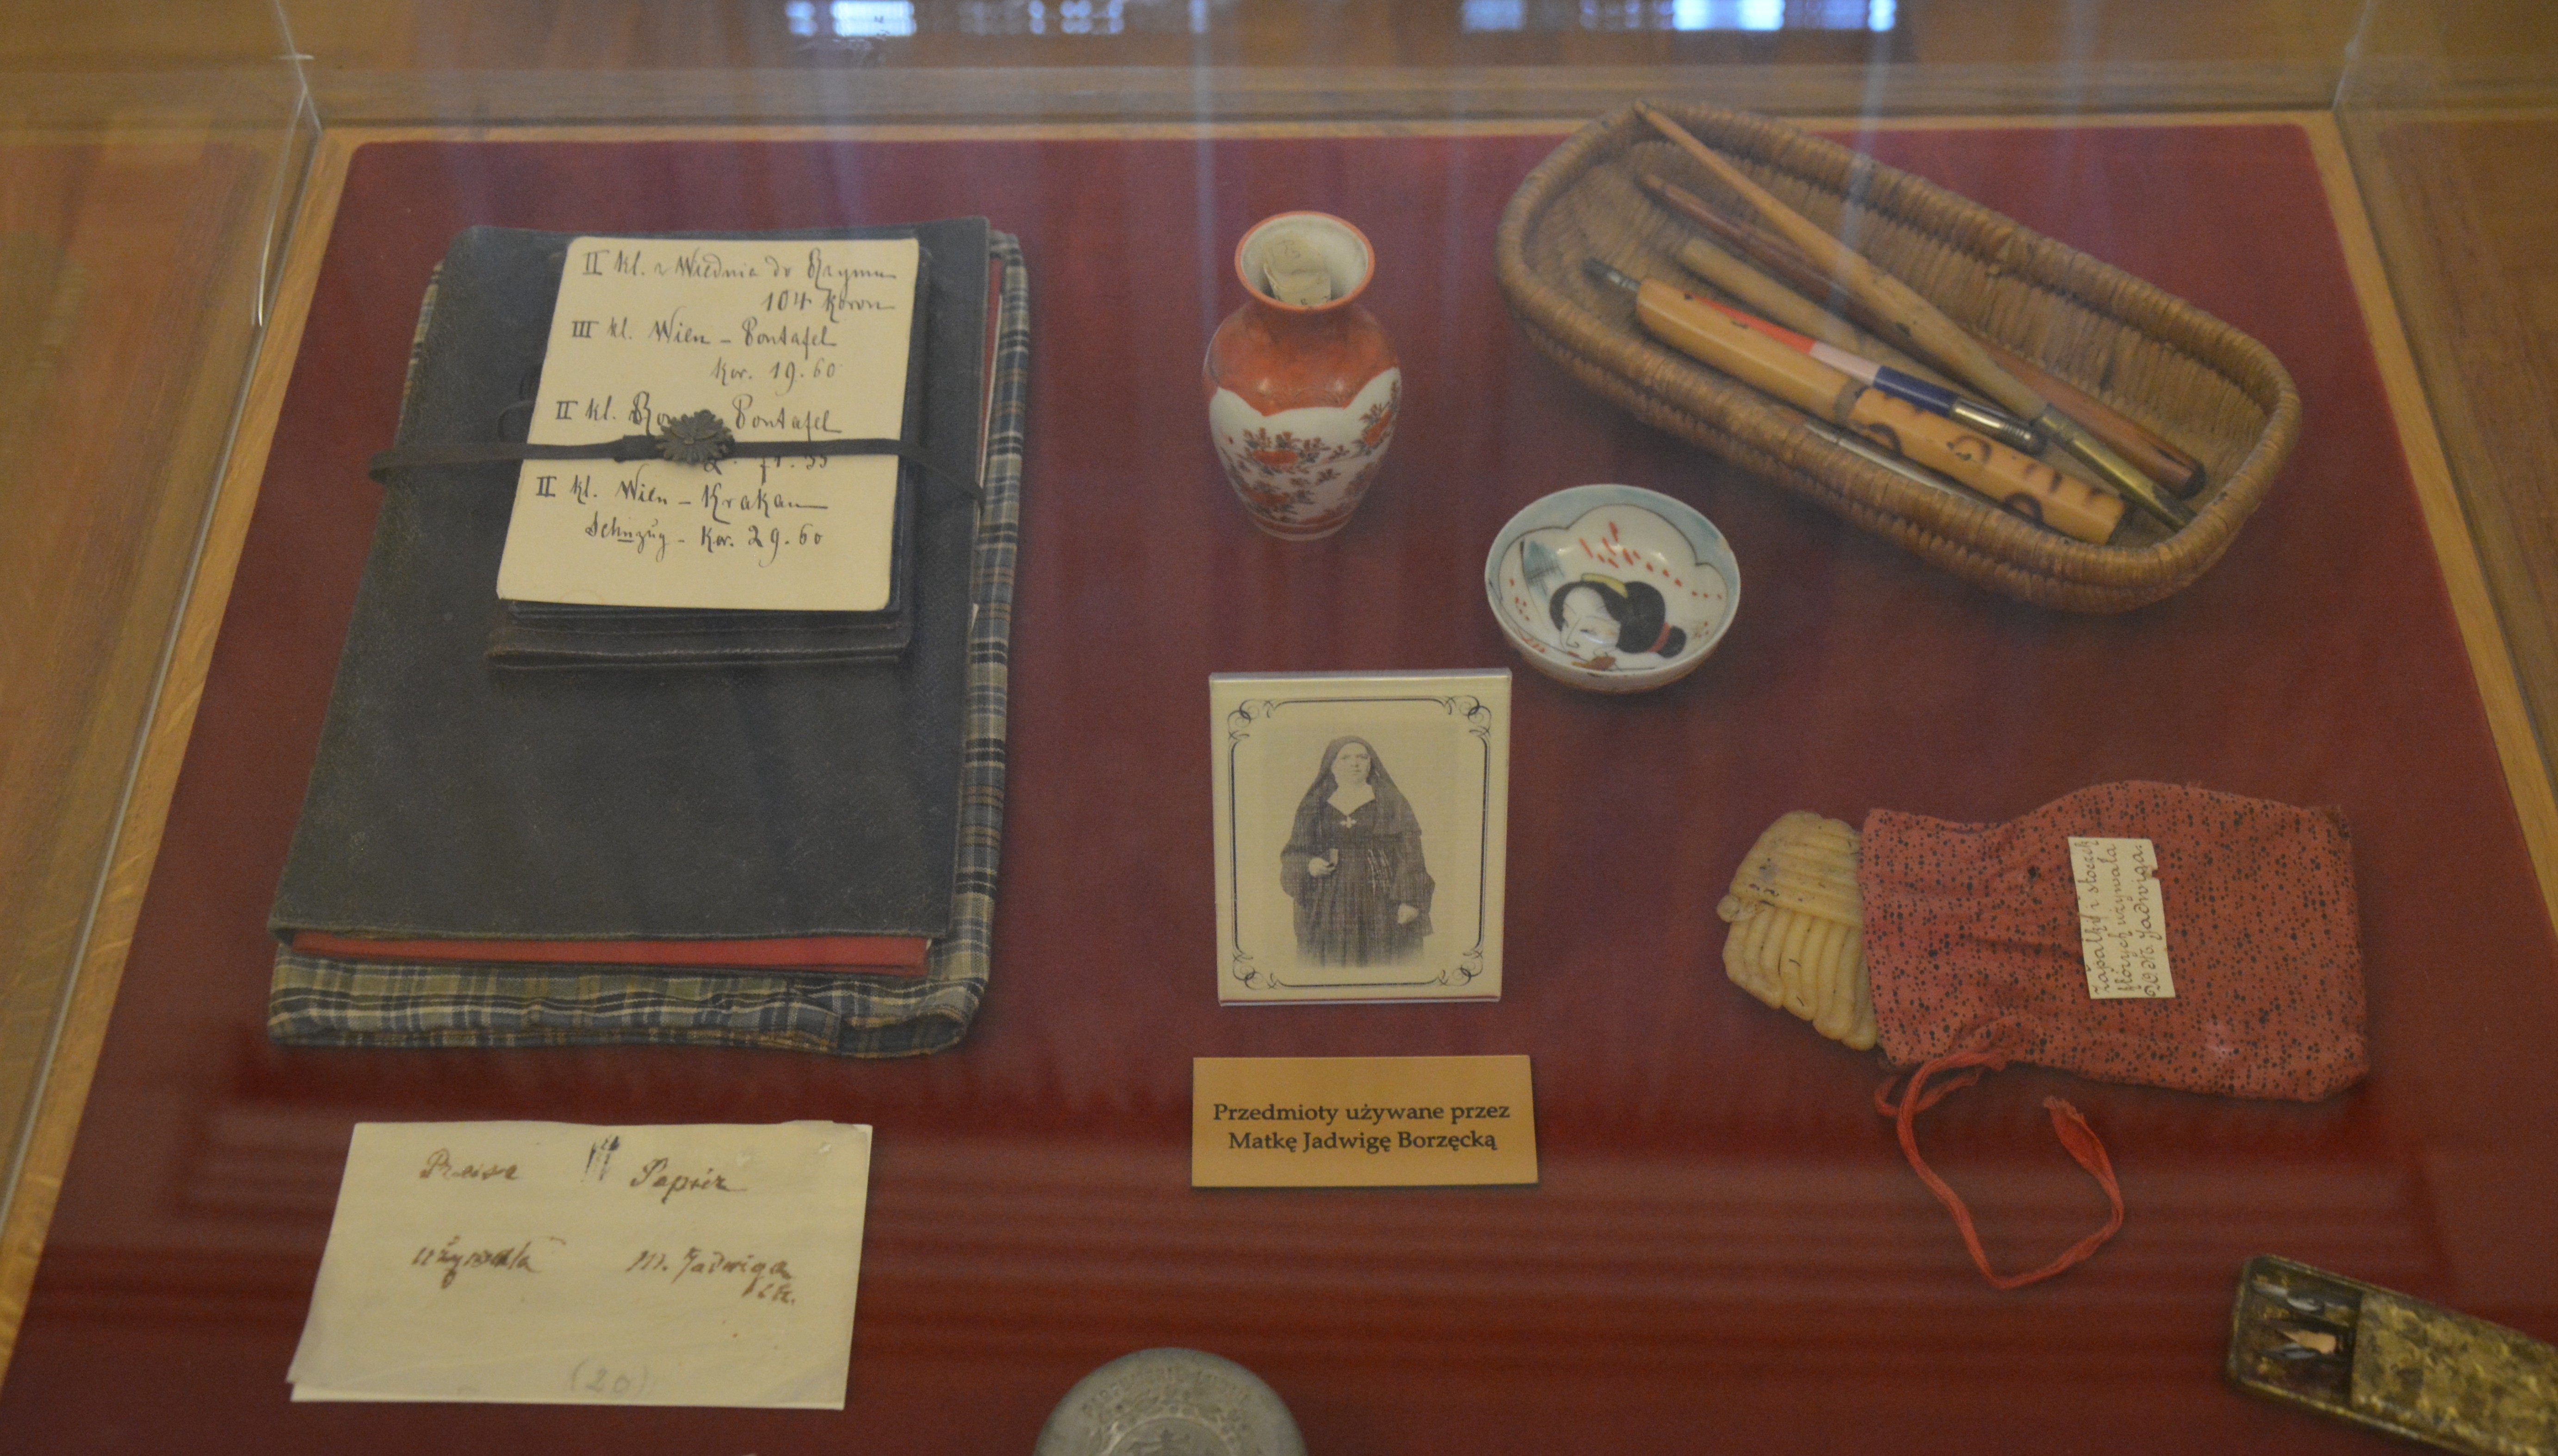 II kl. z Wiednia do Rzymu
104 koron
III kl. Wien – Pontafel
kor. 19.60
II kl. Pontafel
II kl. Wien – Krakau
Schnzug – Kor. 29.60
Przedmioty używane przez
Matkę Jadwigę Borzęcką
Zapałki i stoczek
których używała
Jadwiga
Papier
używała M. Jadwiga
(20)